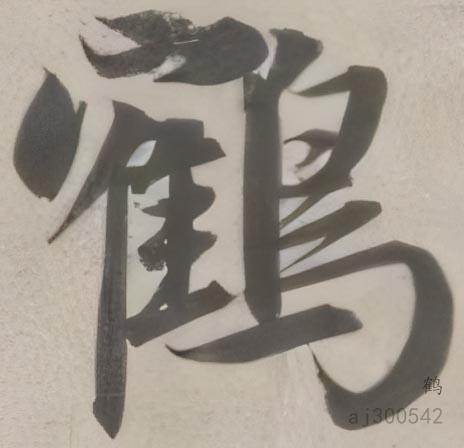 鶴
鹤
aj300542